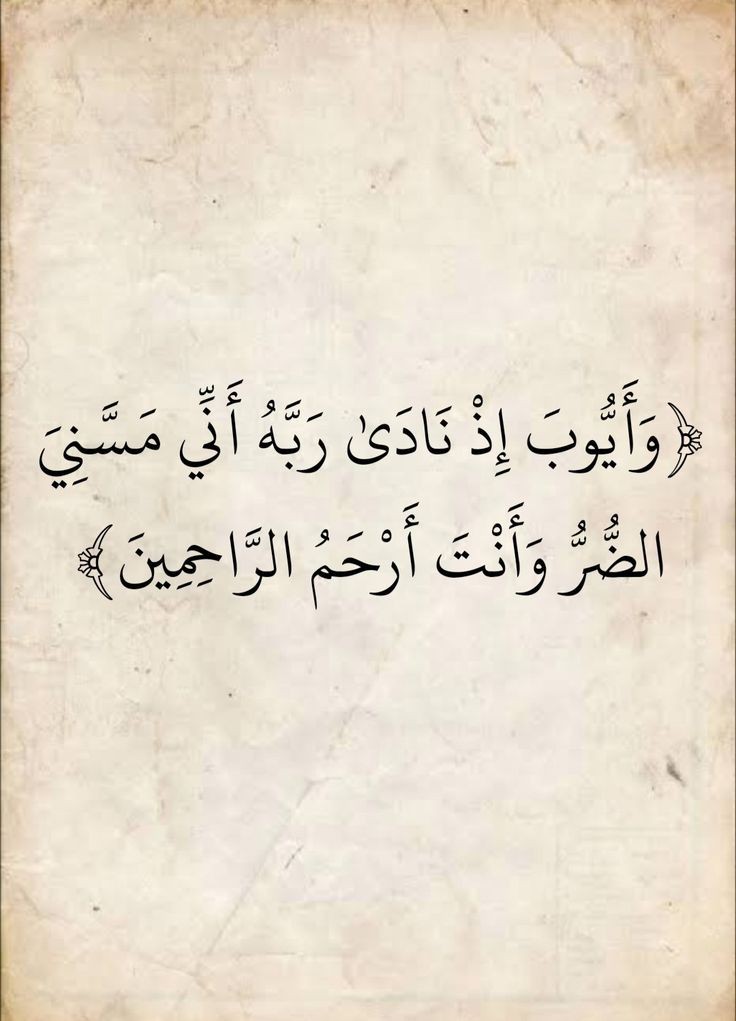 ﴿وَأَيُّوبَ إِذْ نَادَىٰ رَبَّهُ أَنِّي مَسَّنِيَ
الضُّرُّ وَأَنْتَ أَرْحَمُ الرَّاحِمِينَ﴾